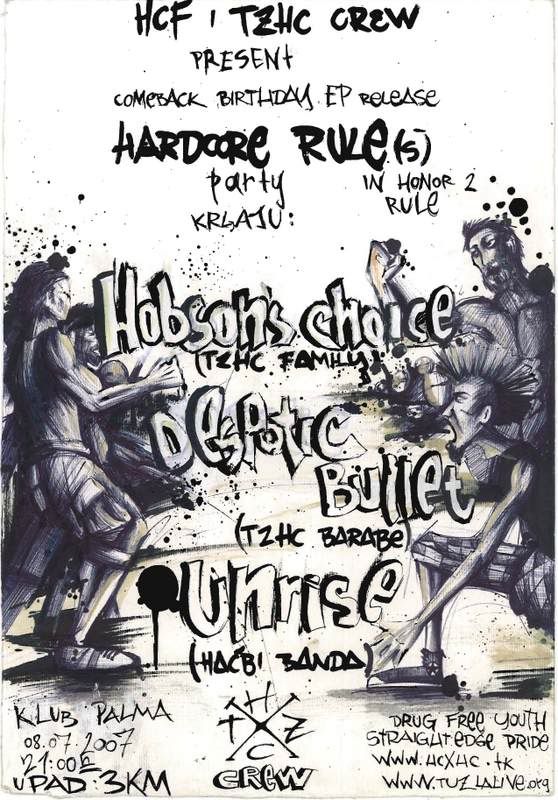 HCF I TZHC CREW
PRESENT
COMEBACK BIRTHDAY EP RELEASE
HARDCORE RULE(S)
party IN HONOR 2
RULE
KRLAJU:
Hobson's choice
(TZHC FAMILY)
Despotic
Bullet
(TZHC BARABE)
Unrise
(HAĆBI BANDA)
KLUB PALMA
08.07.2007
21:00h
UPAD: 3KM
H
T Z
C
CREW
DRUG FREE YOUTH
STRAIGHT EDGE PRIDE
WWW.HCXHC.TK
WWW.TUZLALIVE.org